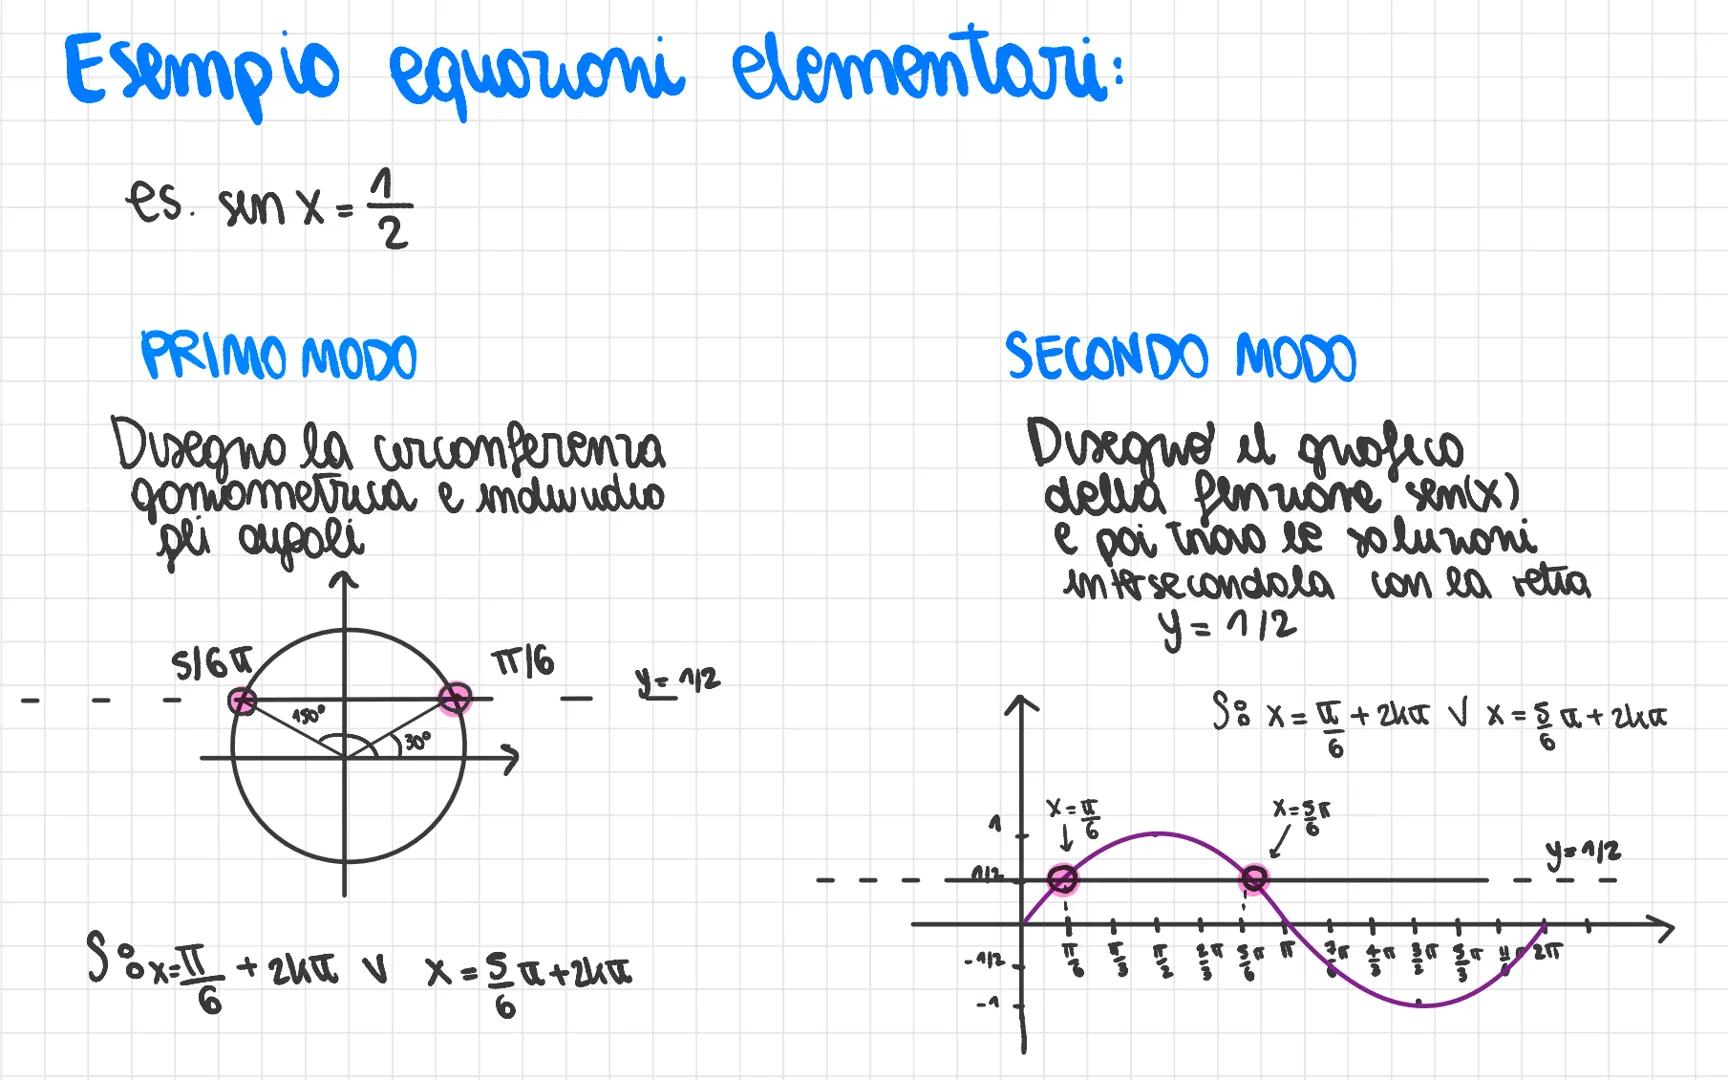 Esempio equazioni elementari:
es. sin x = 1/2
PRIMO MODO
Disegno la circonferenza
goniometrica e individuo
gli angoli
5/6 π
π/6
y = 1/2
150°
30°
S: x = π/6 + 2kπ ∨ x = 5/6 π + 2kπ
SECONDO MODO
Disegno il grafico
della funzione sen(x)
e poi trovo le soluzioni
intersecandola con la retta
y = 1/2
S: x = π/6 + 2kπ ∨ x = 5/6 π + 2kπ
x = π/6
x = 5/6 π
y = 1/2
1
1/2
-1/2
-1
π/6 π/3 π/2 2/3 π 5/6 π π 7/6 π 4/3 π 3/2 π 5/3 π 2π